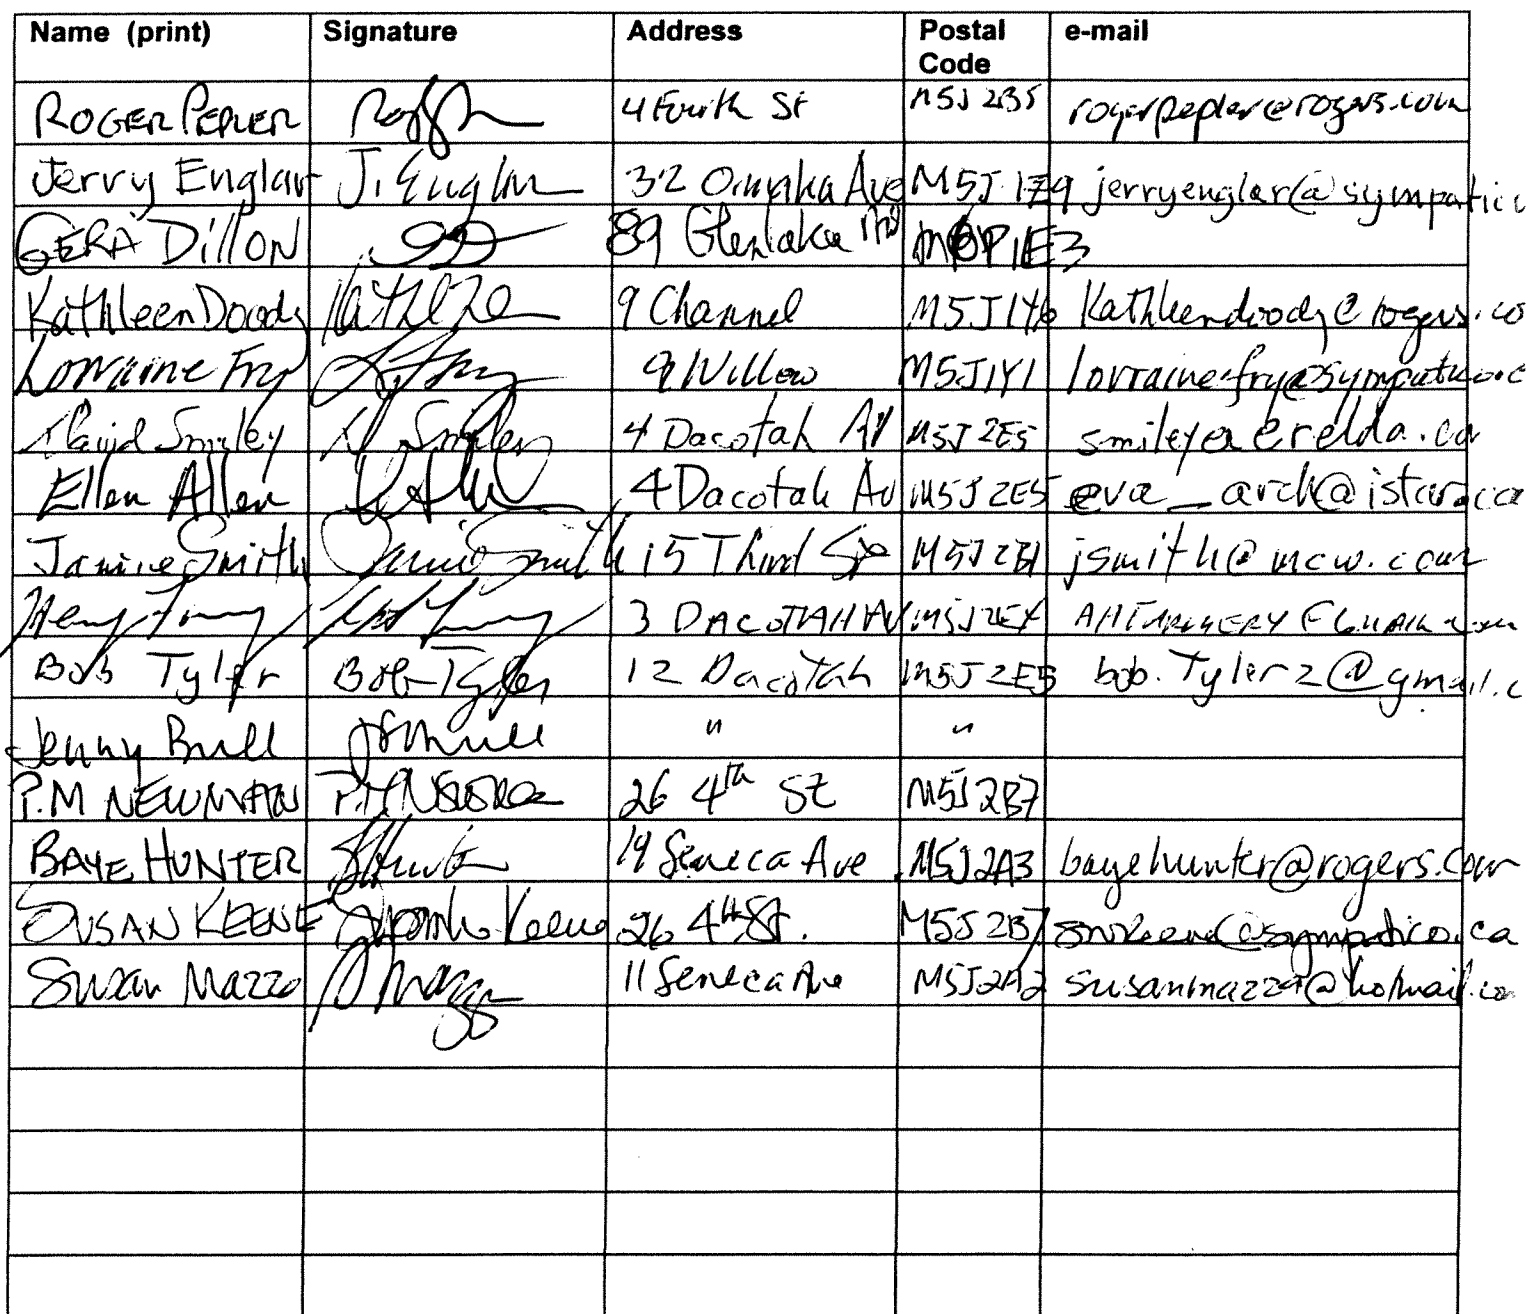 Name (print) Signature Address Postal Code e-mail
ROGER PEPLER 4 Fourth St M5J 2B5 rogerpepler@rogers.com
Jerry Englar J. Englar 32 Omaha Ave M5J 1Z9 jerryenglar@sympatico
GERA Dillon 89 Glenlake M6P1E3
Kathleen Doody 9 Channel M5J1Y6 Kathleendoody@rogers.co
Lorraine Fry 9 Willow M5J1Y1 lorraine.fry@sympatico.c
David Smiley D Smiley 4 Dacotah AV M5J 2E5 smiley@erelda.ca
Ellen Allen 4 Dacotah Av M5J 2E5 eva_arch@istar.ca
Janine Smith Janine Smith 15 Third M5J 2B1 jsmith@mcw.com
3 DACOTAH AV M5J2E4
Bob Tyler Bob Tyler 12 Dacotah M5J 2E5 bob.Tyler2@gmail.c
Jenny Bull " "
P.M NEWMAN 26 4th St M5J 2B7
BAYE HUNTER 19 Seneca Ave M5J2A3 bayehunter@rogers.com
SUSAN KEENE Keene 26 4th St. M5J 2B7 @sympatico.ca
Susan Mazzo 11 Seneca Ave M5J2A2 @hotmail.co